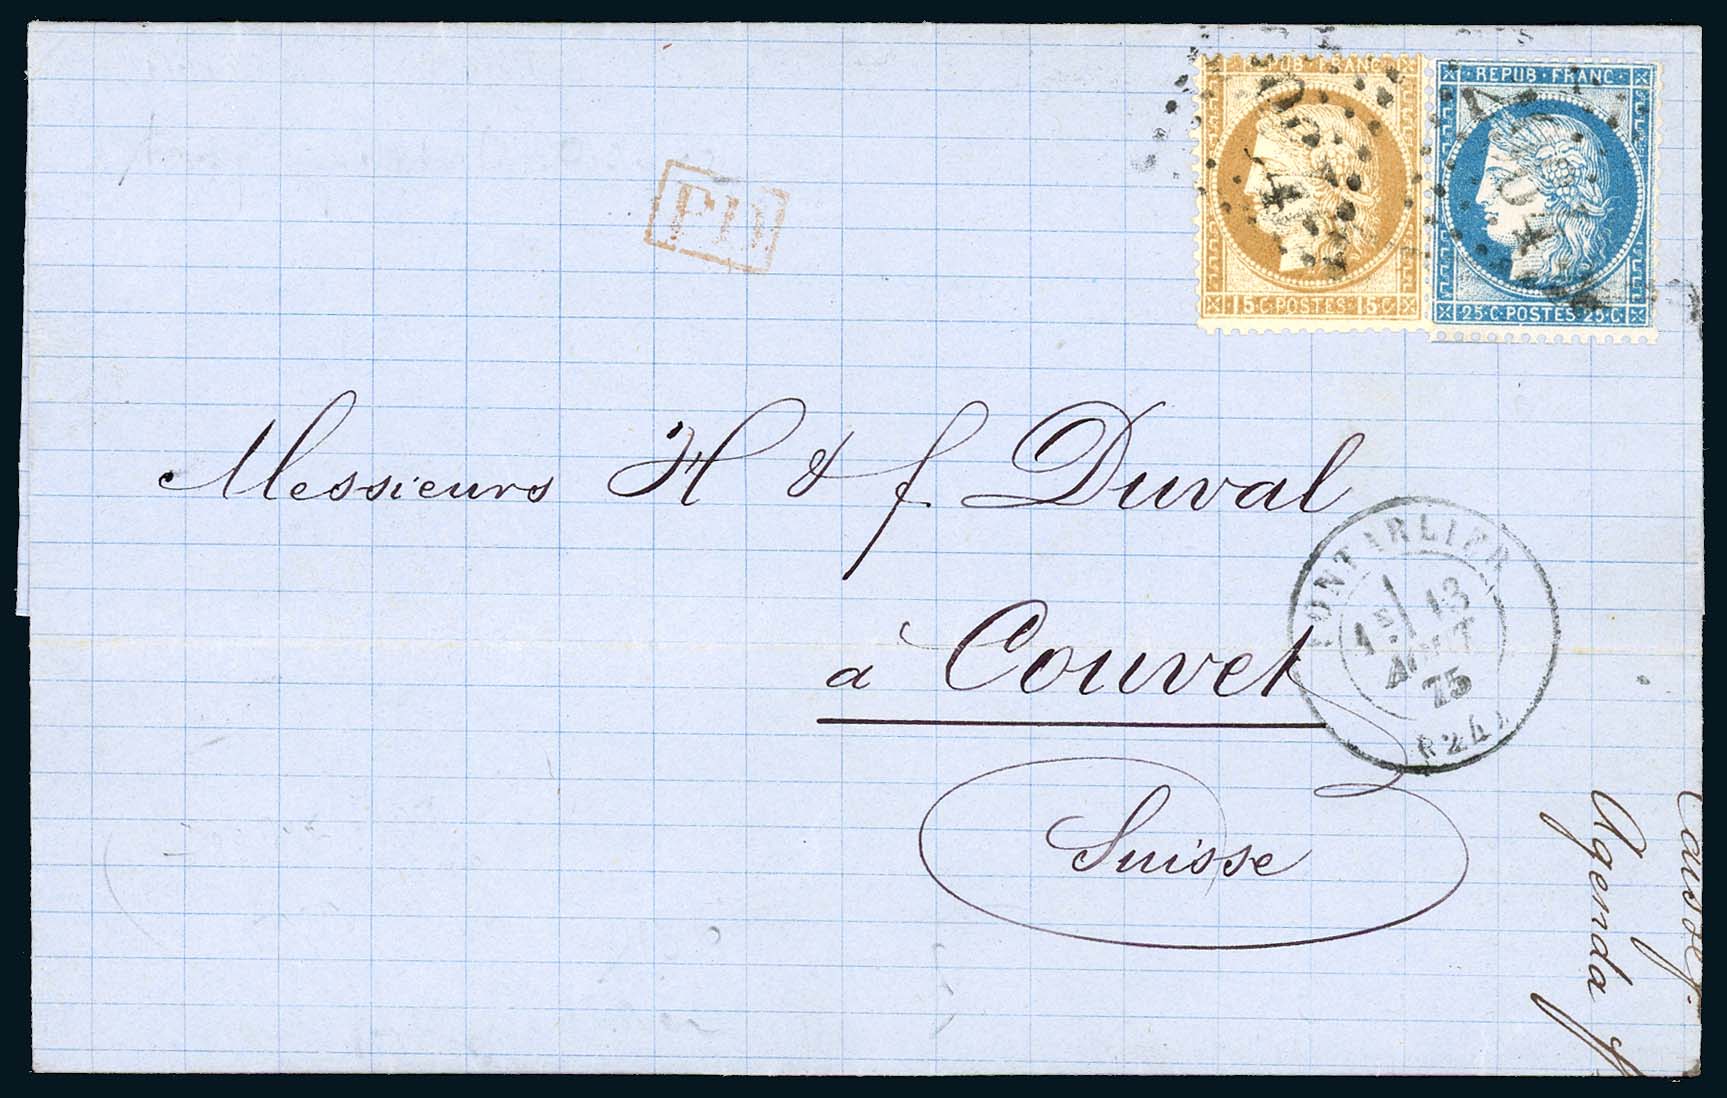 REPUB · FRANC ·
REPUB · FRANC ·
15·C·POSTES·15·C
25·C·POSTES·25·C
PD
Messieurs H & f. Duval
à Couvet
Suisse
PONTARLIER
13
AOUT
75
(24)
Agenda